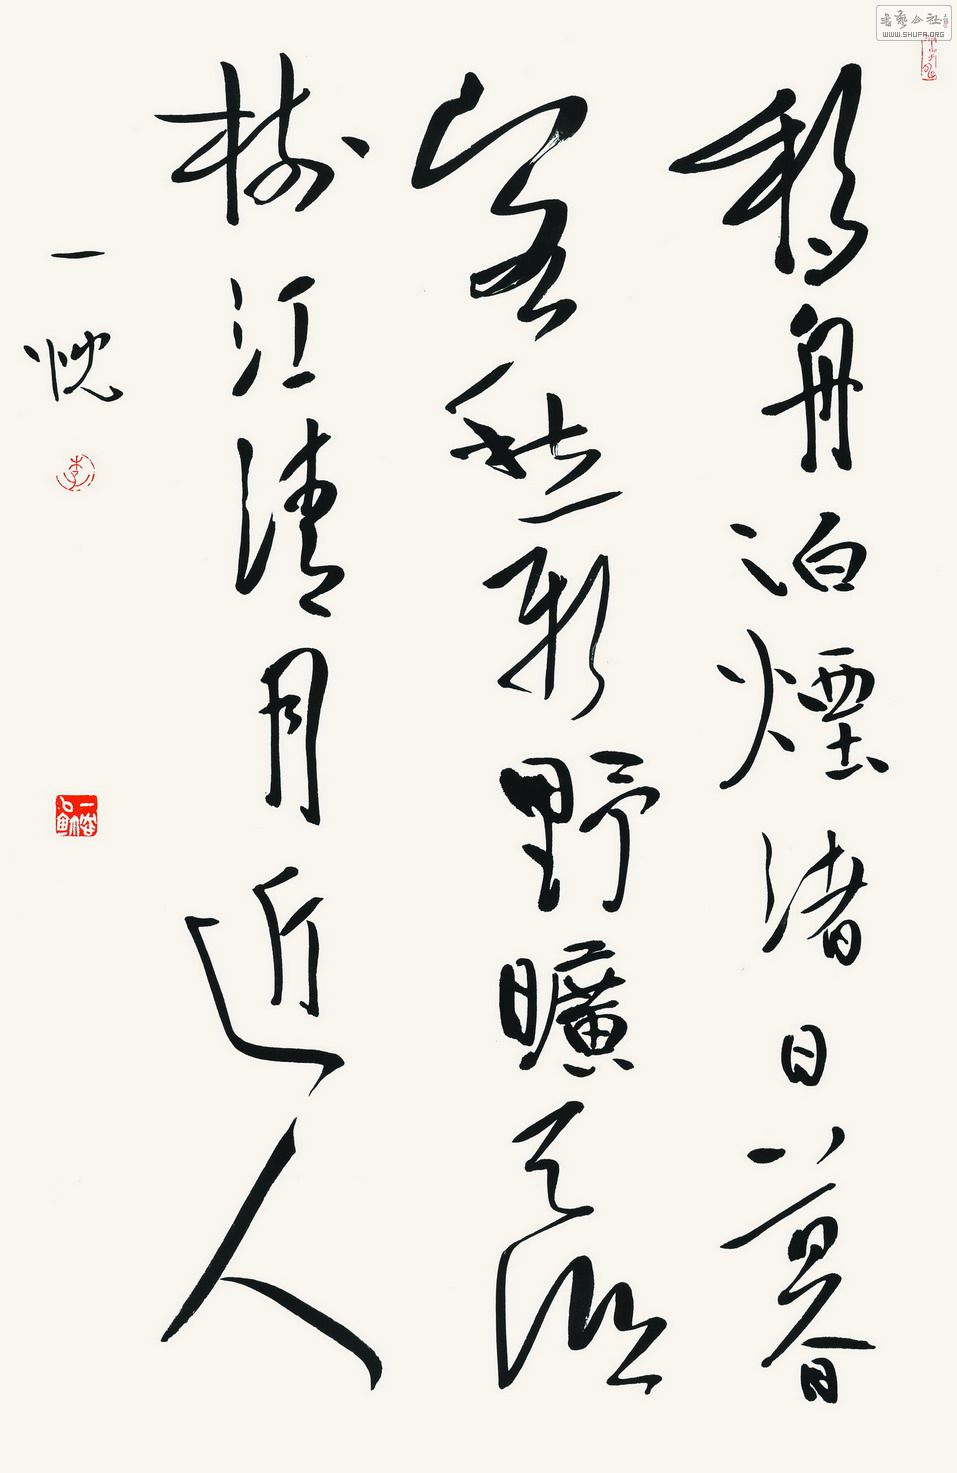 書藝公社
WWW.SHUFA.ORG
移舟泊煙渚日暮
客愁新野曠天低
樹江清月近人
一忱
李